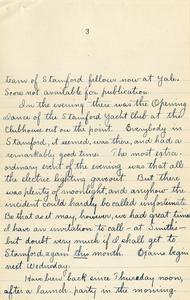 3
team of Stamford fellows now at Yale.
Score not available for publication.
In the evening there was the Opening
dance of the Stamford Yacht Club at the
Clubhouse out on the point. Everybody in
Stamford, it seemed, was there, and had a
remarkably good time. The most extra-
ordinary event of the evening was that all
the electric lighting gave out. But there
was plenty of moonlight, and anyhow the
incident could hardly be called unfortunate.
Be that as it may, however, we had great times.
I have an invitation to call - at Smith's -
but doubt very much if I shall get to
Stamford again this month. Exams begin
next Wednesday.
Have been back since Thursday noon,
after a launch party in the morning.